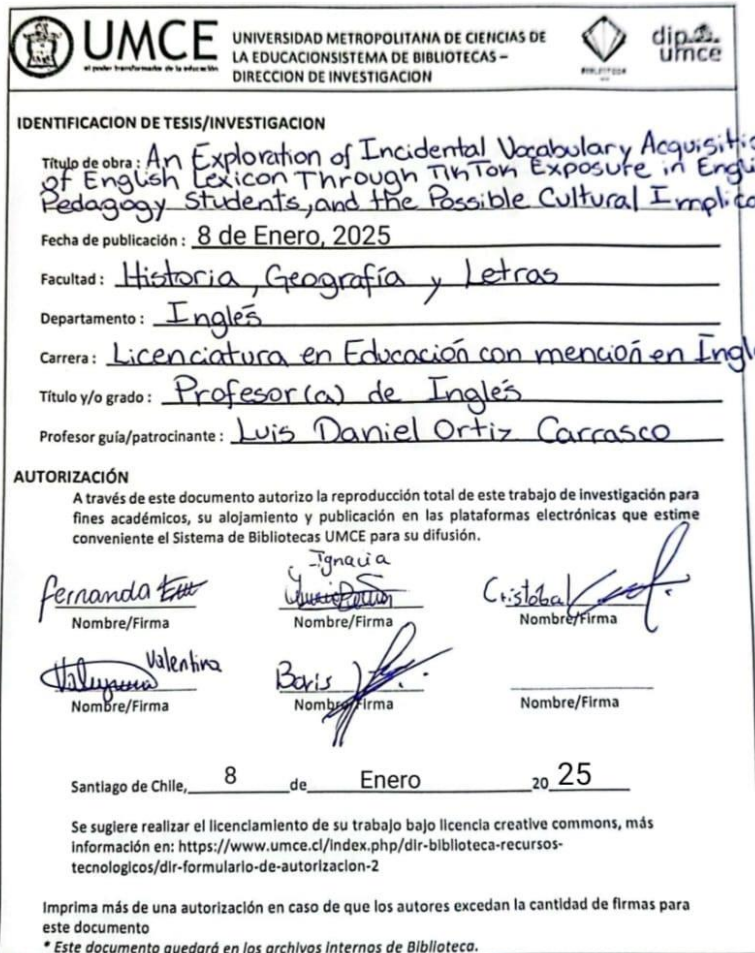 UMCE
el poder transformador de la educación
UNIVERSIDAD METROPOLITANA DE CIENCIAS DE
LA EDUCACIONSISTEMA DE BIBLIOTECAS –
DIRECCION DE INVESTIGACION
BIBLIOTECA
dip.
umce
IDENTIFICACION DE TESIS/INVESTIGACION
Título de obra : An Exploration of Incidental Vocabulary Acquisitio
of English Lexicon Through TikTok Exposure in Engli
Pedagogy Students, and the Possible Cultural Implica
Fecha de publicación : 8 de Enero, 2025
Facultad : Historia, Geografía y Letras
Departamento : Inglés
Carrera : Licenciatura en Educación con mención en Ingl
Título y/o grado : Profesor(a) de Inglés
Profesor guía/patrocinante : Luis Daniel Ortiz Carrasco
AUTORIZACIÓN
A través de este documento autorizo la reproducción total de este trabajo de investigación para
fines académicos, su alojamiento y publicación en las plataformas electrónicas que estime
conveniente el Sistema de Bibliotecas UMCE para su difusión.
Fernanda Ignacia Cristobal
Nombre/Firma Nombre/Firma Nombre/Firma
Valentina Boris
Nombre/Firma Nombre/Firma Nombre/Firma
Santiago de Chile, 8 de Enero 20 25
Se sugiere realizar el licenciamiento de su trabajo bajo licencia creative commons, más
información en: https://www.umce.cl/index.php/dir-biblioteca-recursos-
tecnologicos/dir-formulario-de-autorizacion-2
Imprima más de una autorización en caso de que los autores excedan la cantidad de firmas para
este documento
* Este documento quedará en los archivos internos de Biblioteca.